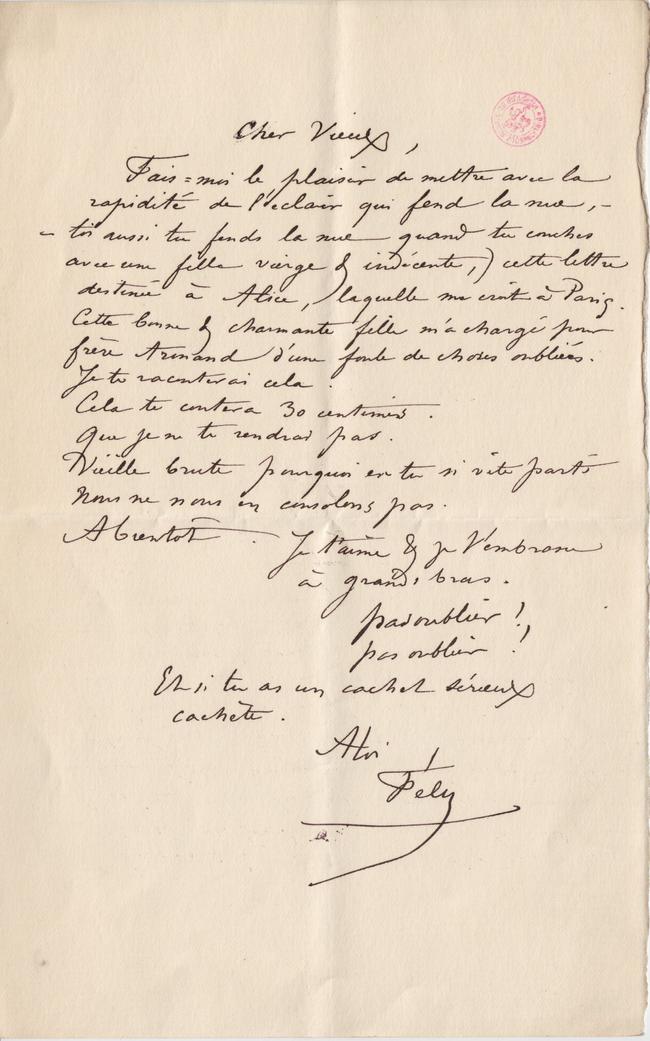 Cher Vieux,
Fais=moi le plaisir de mettre avec la
rapidité de l'éclair qui fend la nue, -
- toi aussi tu fends la nue quand tu couches
avec une fille vierge & indécente,) cette lettre
destinée à Alice, laquelle me croit à Paris.
Cette bonne & charmante fille m'a chargé pour
frère Armand d'une foule de choses oubliées.
Je te raconterai cela.
Cela te coutera 30 centimes.
Que je ne te rendrai pas.
Vieille brute pourquoi es tu si vite parti
Nous ne nous en consolons pas.
A bientôt. Je t'aime & je t'embrasse
à grands bras.
pas oublier !
pas oublier !
Et si tu as un cachet sérieux
cachète.
A toi
Fély